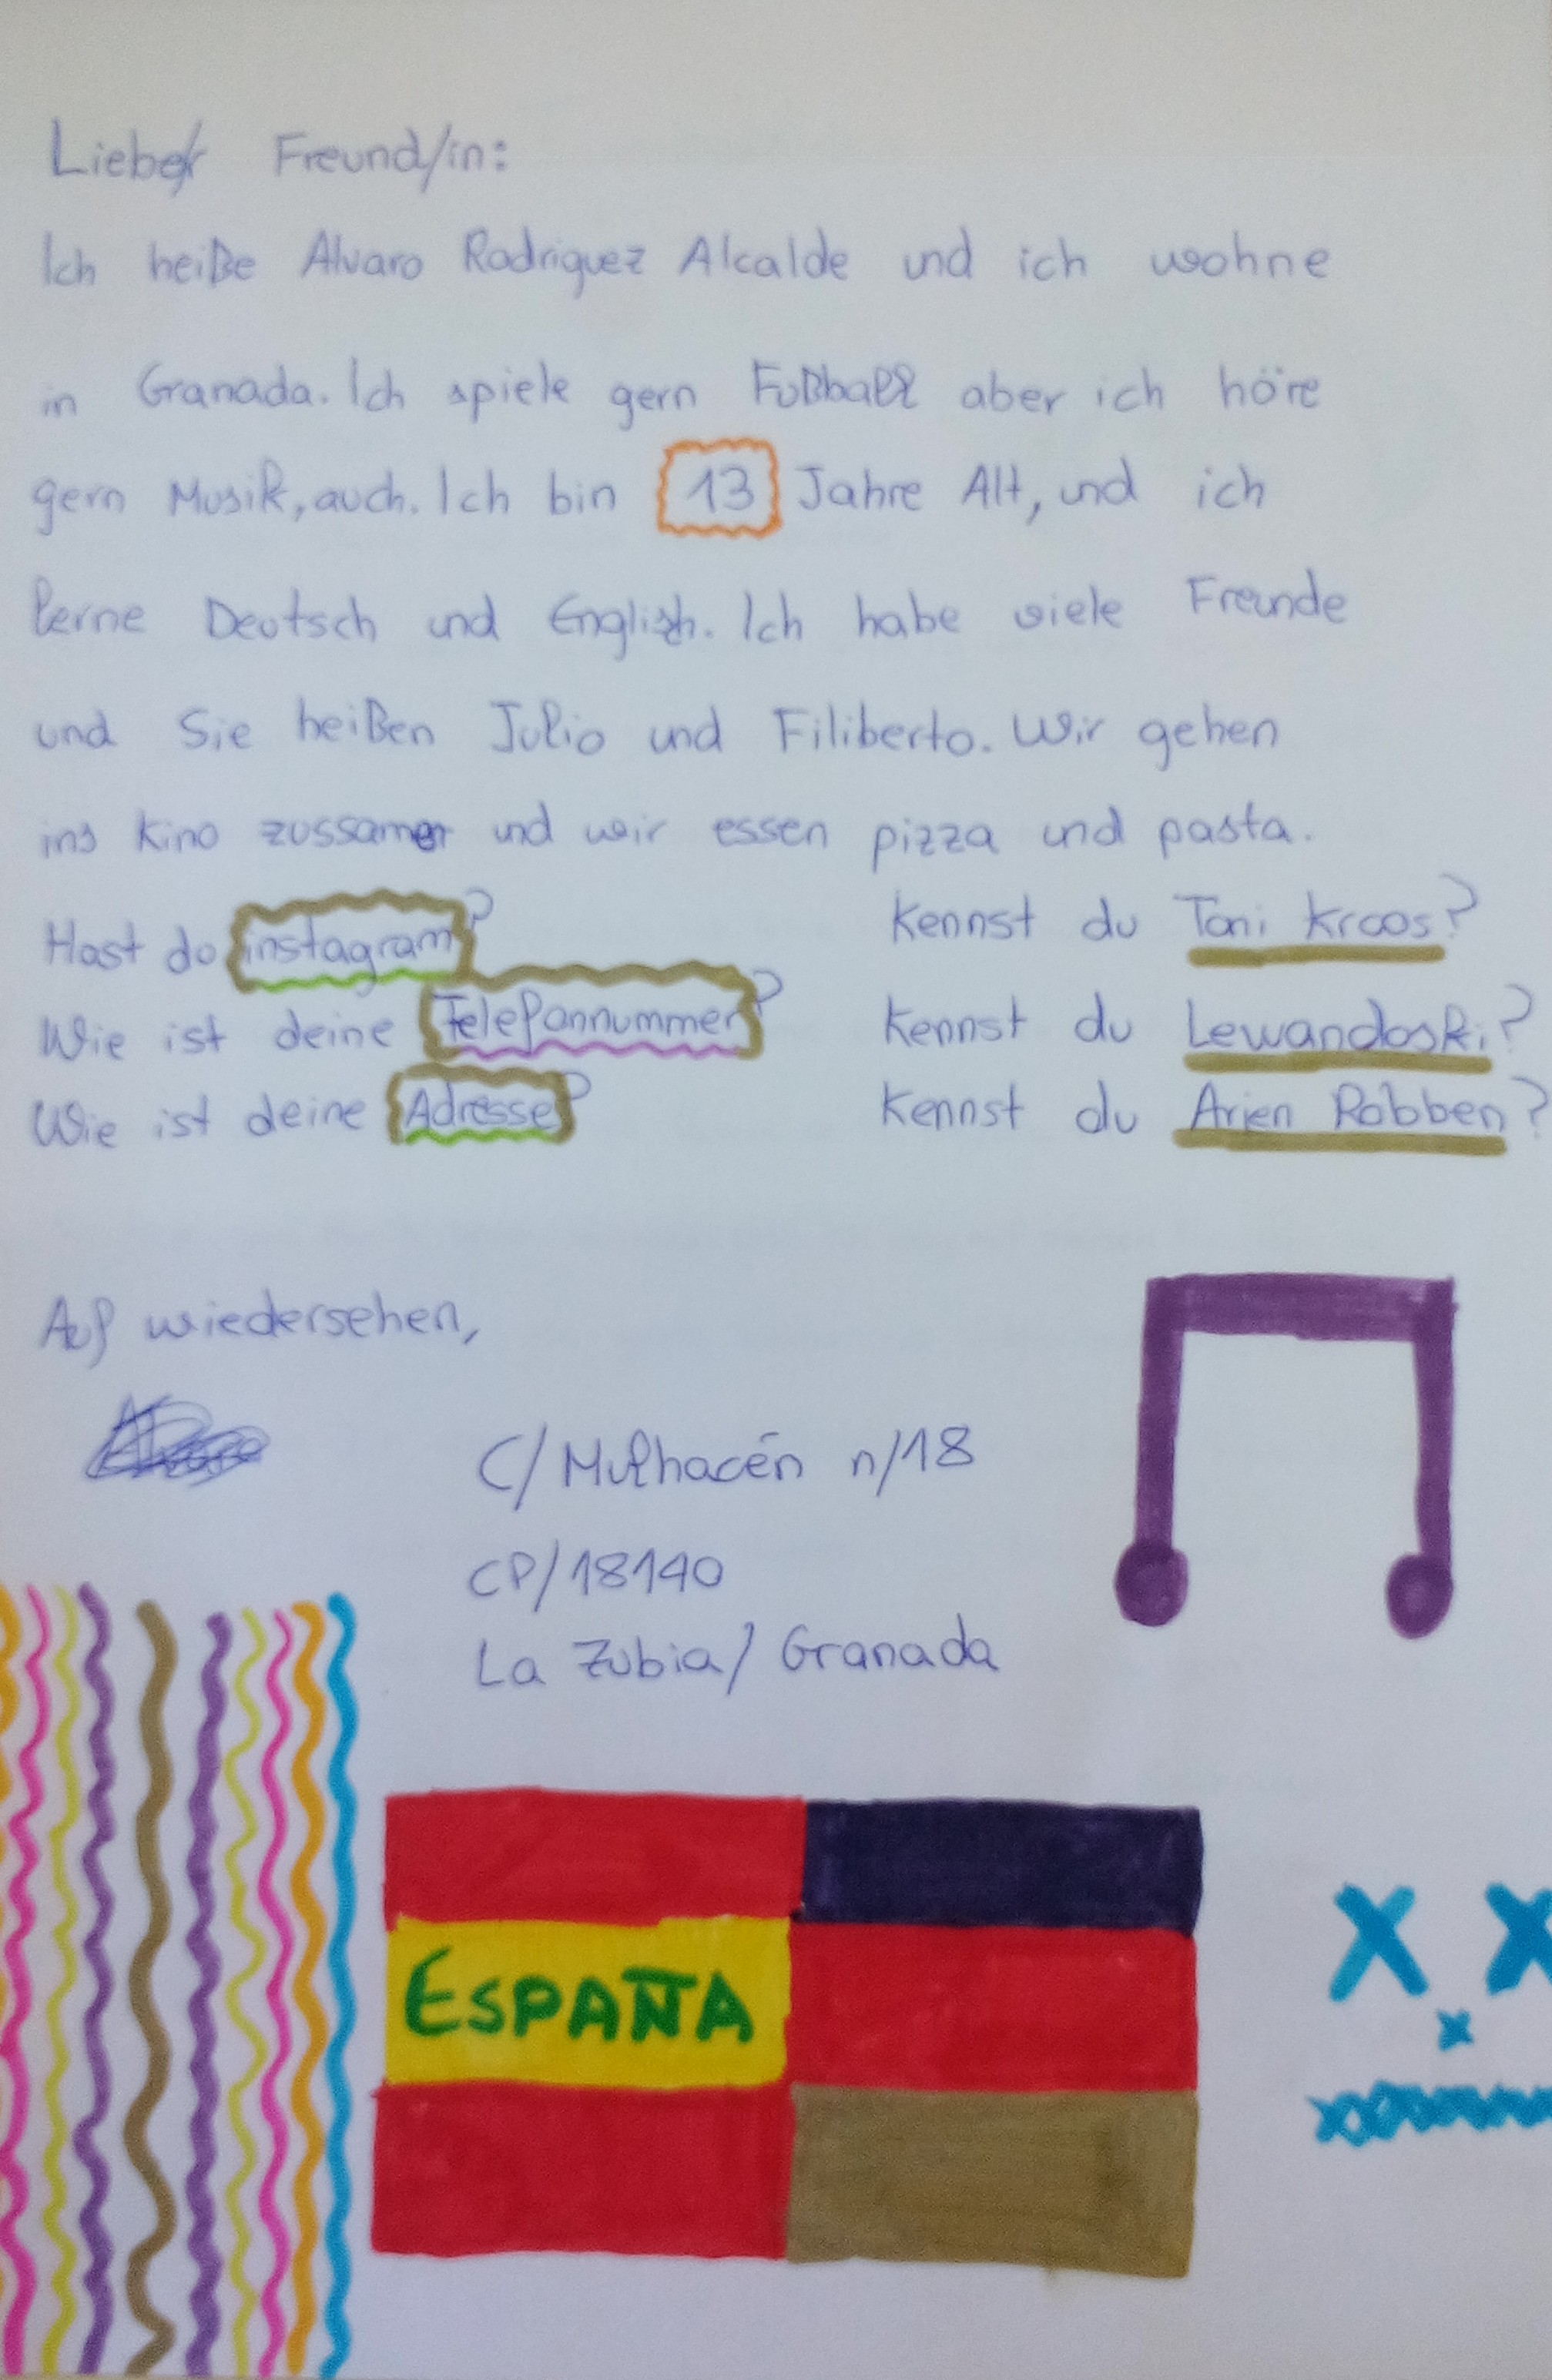 Liebe/r Freund/in:
Ich heiße Alvaro Rodriguez Alcalde und ich wohne
in Granada. Ich spiele gern Fußball aber ich höre
gern Musik, auch. Ich bin 13 Jahre Alt, und ich
lerne Deutsch und English. Ich habe viele Freunde
und Sie heißen Julio und Filiberto. Wir gehen
ins kino zussamen und wir essen pizza und pasta.
Hast du instagram?
Wie ist deine Telefonnummer?
Wie ist deine Adresse?
Kennst du Toni kroos?
Kennst du Lewandoski?
Kennst du Arjen Robben?
Auf wiedersehen,
C/ Mulhacén n/18
CP/18140
La Zubia/ Granada
ESPAÑA